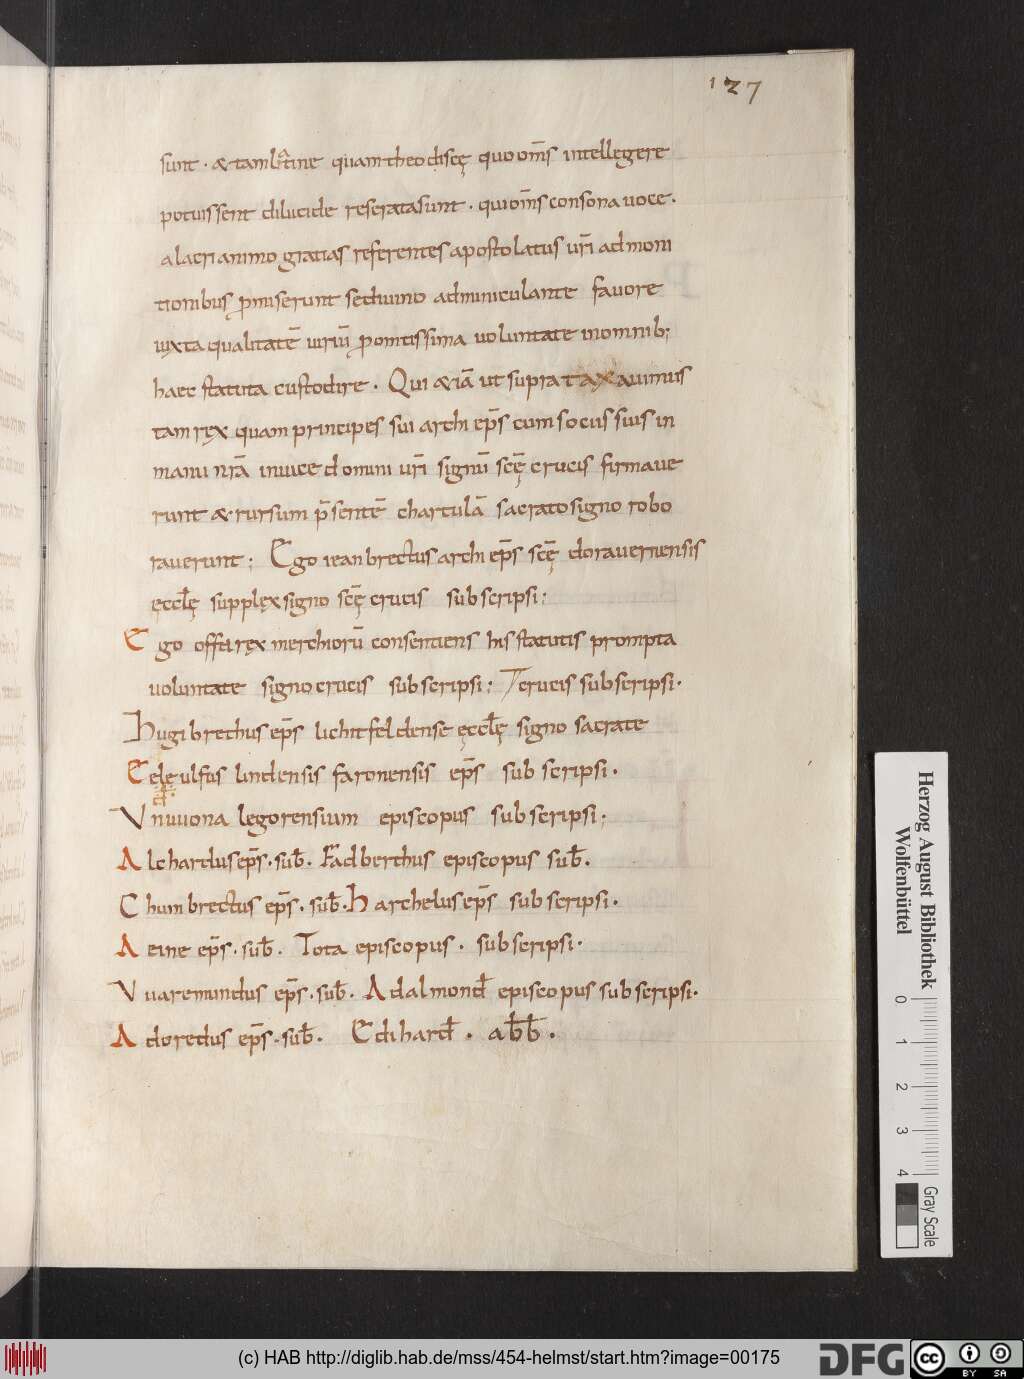 127
sunt · & tam latine quam theodiscę quo om̄s intellegere
potuissent dilucide reserata sunt · qui om̄s consona uoce ·
alacri animo gratias referentes apostolatus ur̄i admoni
tionibus p̄miserunt se diuino adminiculante fauore
iuxta qualitatē uiriū promtissima uoluntate in omnib;
haec statuta custodire · Qui &iā ut supra taxauimus
tam rex quam principes sui archi ep̄s cum sociis suis in
manu nr̄a in uice domini ur̄i signū sc̄ę crucis firmaue
runt & rursum p̄sentē chartulā sacrato signo robo
rauerunt; Ego ieanbrectus archi ep̄s sc̄ę dorauernensis
ęccl̄ę supplex signo sc̄ę crucis subscripsi:
Ego offa rex merchiorū consentiens his statutis prompta
uoluntate signo crucis subscripsi: crucis subscripsi·
Hugibrethus ep̄s lichitfeldense ęccl̄ę signo sacrate
Celęulfus lindensis faronensis ep̄s subscripsi·
Vnuuona legorensium episcopus subscripsi;
Alchardus ep̄s· sub̄· Eadberthus episcopus sub̄·
Chumbrectus ep̄s· sub̄· Harchelus ep̄s subscripsi·
Aeine ep̄s· sub̄· Tota episcopus· subscripsi·
Vuaremundus ep̄s· sub̄· Adalmond̄ episcopus subscripsi·
Adoredus ep̄s· sub̄· Edihard̄· ab̄b̄·
Herzog August Bibliothek
Wolfenbüttel
0 1 2 3 4
Gray Scale
(c) HAB http://diglib.hab.de/mss/454-helmst/start.htm?image=00175
DFG
cc BY SA